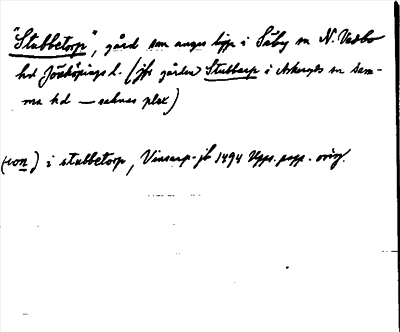 "Stubbetorp", gård som anges ligga i Säby sn N. Vedbo
hd Jönköpings l. (jfr gården Stubbarp i Askeryds sn sam-
ma hd — saknas plex)
(von) i stubbetorp, Vinsarp-jb 1494 Upps. papp. orig.